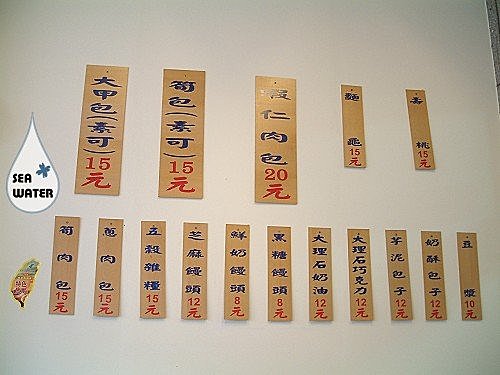 大甲包(素可)15元
筍包(素可)15元
蝦仁肉包20元
麵龜15元
壽桃15元
SEA
WATER
筍肉包15元
蔥肉包15元
五穀雜糧15元
芝麻饅頭12元
鮮奶饅頭8元
黑糖饅頭8元
大理石奶油12元
大理石巧克力12元
芋泥包子12元
奶酥包子12元
豆漿10元
特色